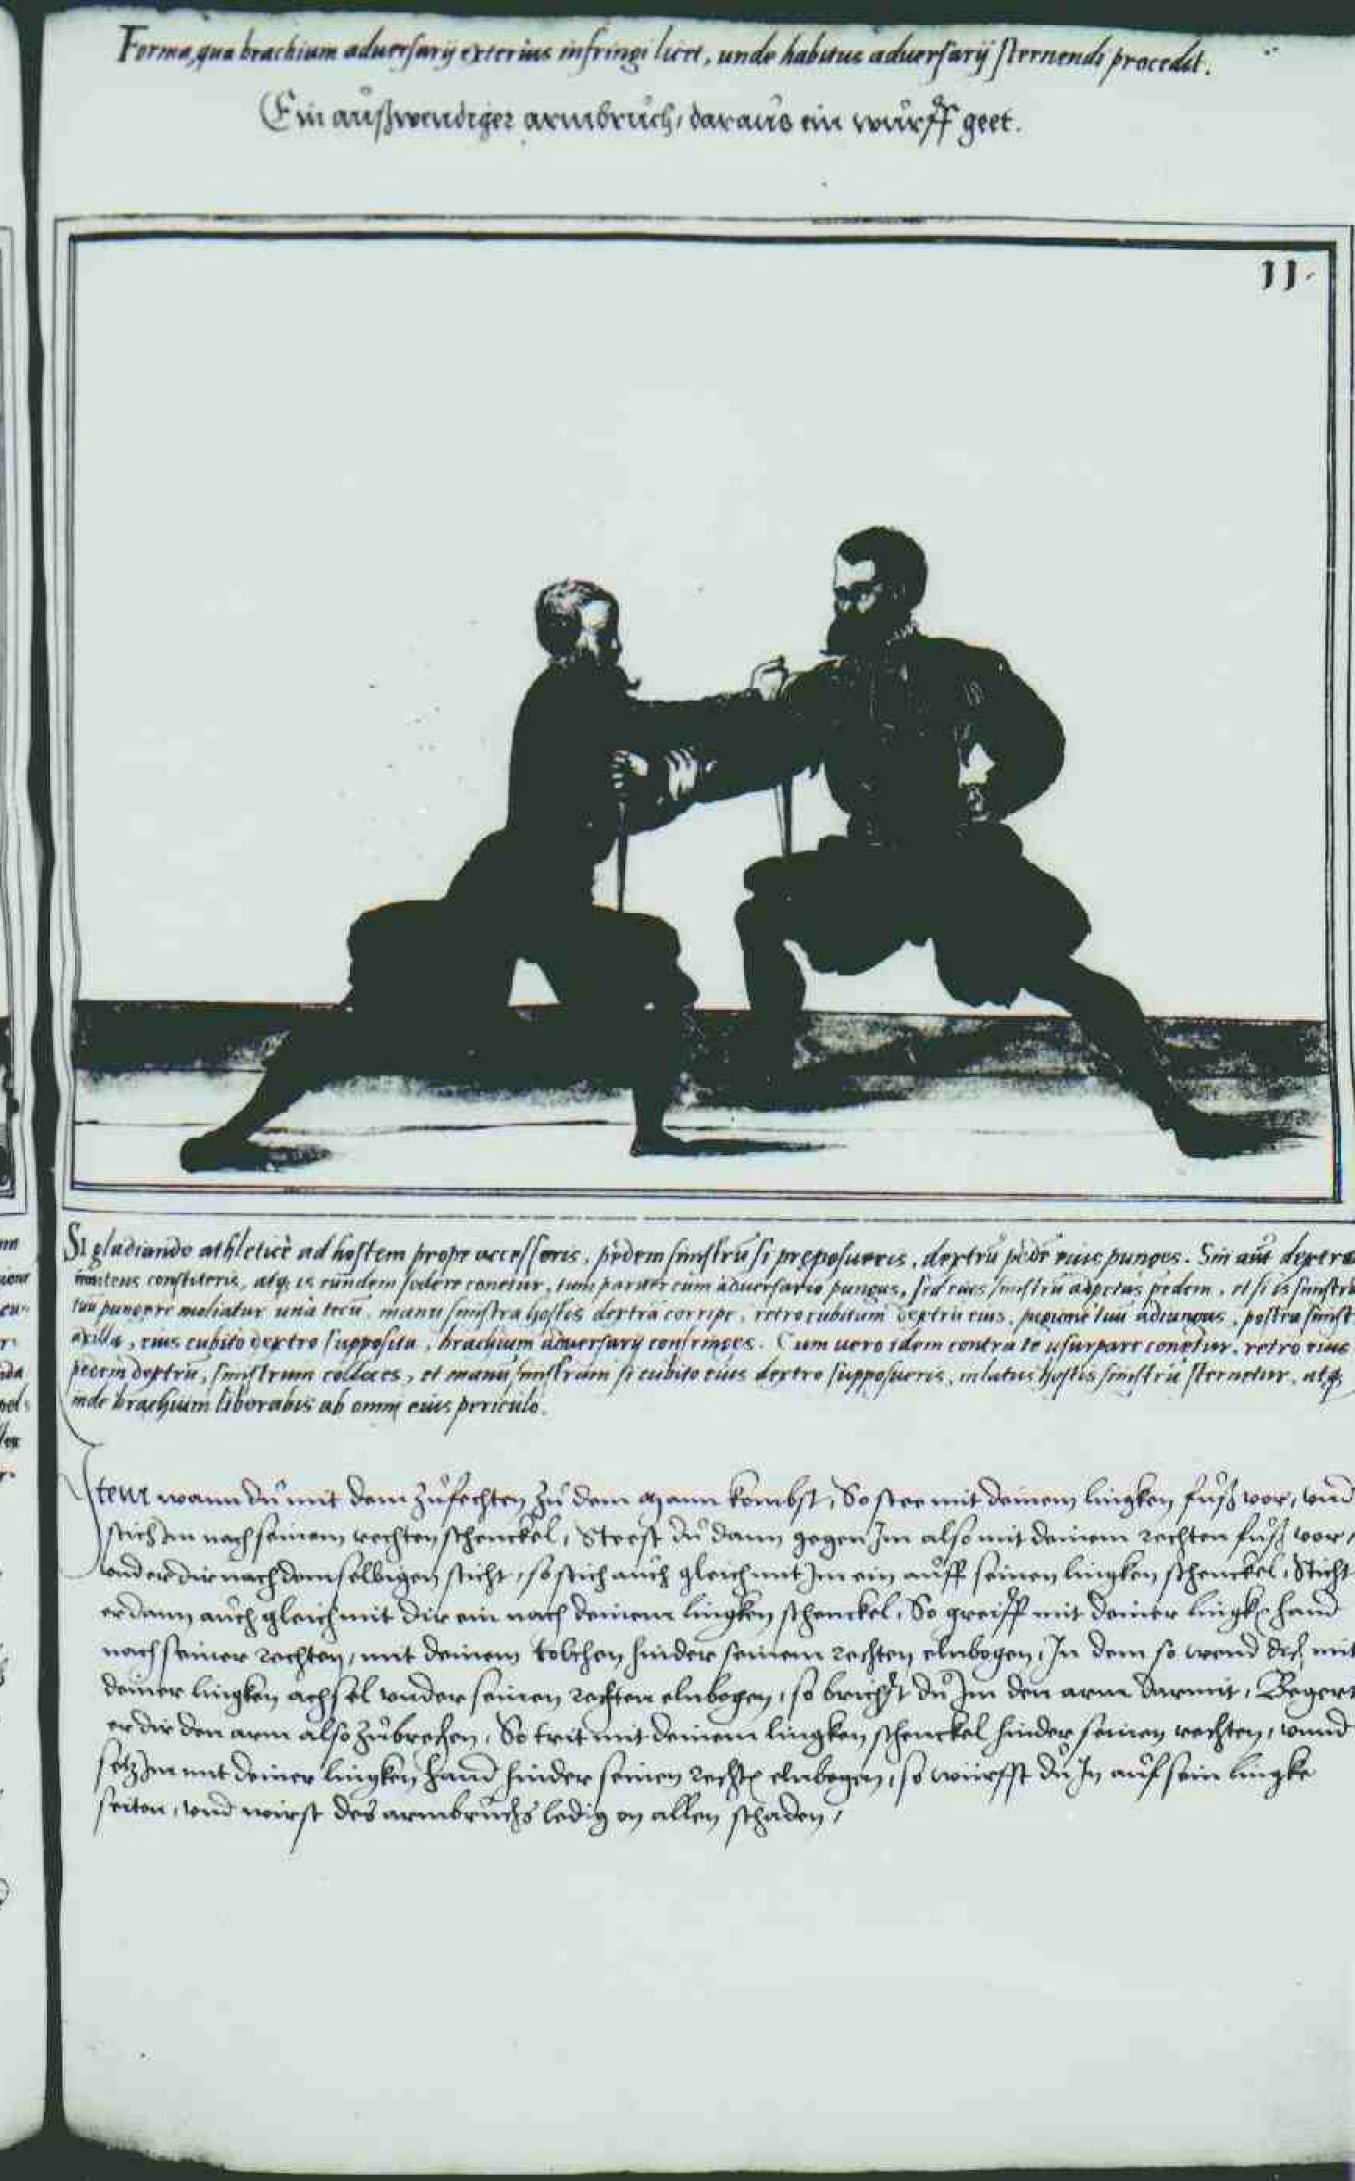 Forma, qua brachium adversarij exterius infringi licet, unde habitus adversarij sternendi procedit.
Ein außwendiger armbruch, daraus ein wurff geet.
11.
SI gladiando athleticè ad hostem prope accesseris, pedem sinistrũ si preposueris, dextrũ pedẽ eius punges. Sin aũt dextro
innitens constiteris, atq; is eundem fodere conetur, tum pariter cum adversario punges, sed eius sinistrũ adpetas pedem, et si is sinistrũ
tuũ pungere moliatur una tecũ, manu sinistra hostis dextra corripe, retro cubitum dextrũ eius, pugione tuũ adiungas, postea sinistr
axilla, eius cubito dextro supposita, brachium adversarij confringes. Cum vero idem contra te usurpare conetur, retro eius
pedem dextrũ, sinistrum colloces, et manũ sinistram si cubito eius dextro supposueris, in latus hostis sinistrũ sternetur, atq;
inde brachium liberabis ab omni eius periculo.
Item wann du mit dem zufechten zu dem mann kombst, So stee mit deinem lingken fuß vor, vnd
stich Im nach seinem rechten schenckel, Steest du dann gegen Im also mit deinem rechten fuß vor,
vnd er dir nach demselbigen sticht, so stich auch gleich mit Im ein auff seinen lingken schenckel, Sticht
er dann auch gleich mit dir ein nach deinem lingken schenckel, So greiff mit deiner lingkẽ hand
nach seiner rechten, mit deinem tolchen hinder seinem rechten elnbogen, In dem so wend dich mit
deiner lingken achsel vnder seinen rechten elnbogen, so brichst du Im den arm darmit, Begert
er dir den arm also zubrechen, So trit mit deinem lingken schenckel hinder seinen rechten, vnnd
setz Im mit deiner lingken hand hinder seinen rechtẽ elnbogen, so würffst du In auf sein lingke
seiten, vnd wirst des armbruchs ledig on allen schaden,